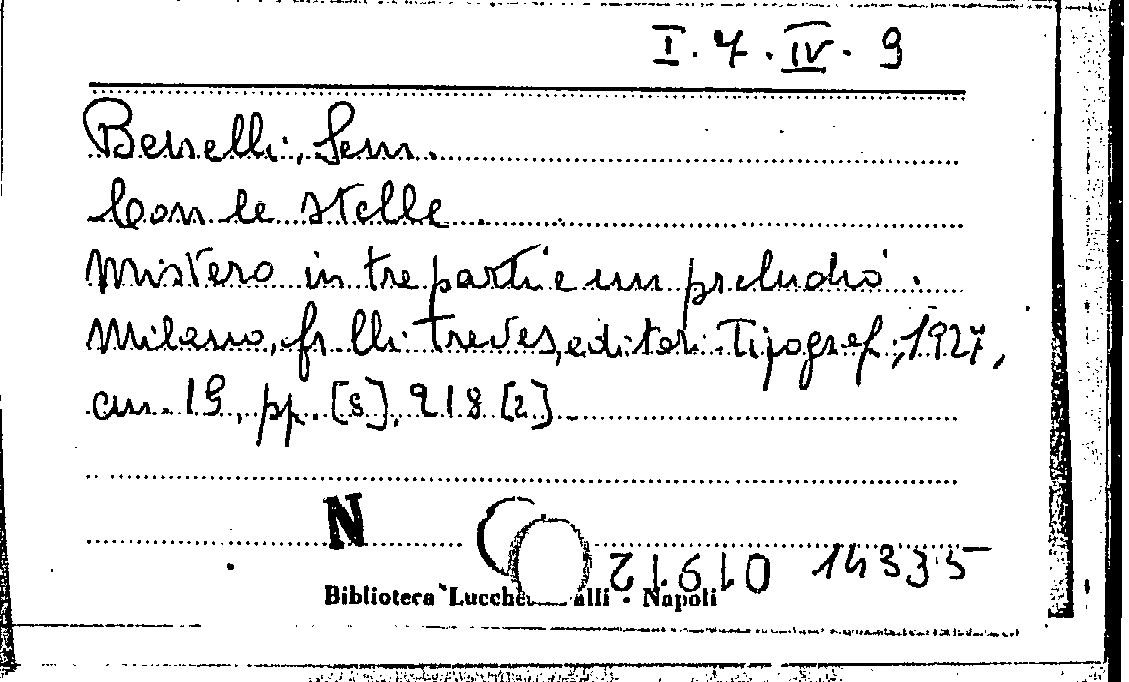 I. 7. IV. 9
Benelli, Sem.
Con le stelle.
Mistero in tre parti e un preludio.
Milano, f.lli Treves, editori-Tipograf., 1927,
cm. 19, pp. [8], 218 [2].
N
21910 14335
Biblioteca "Lucche alli - Napoli